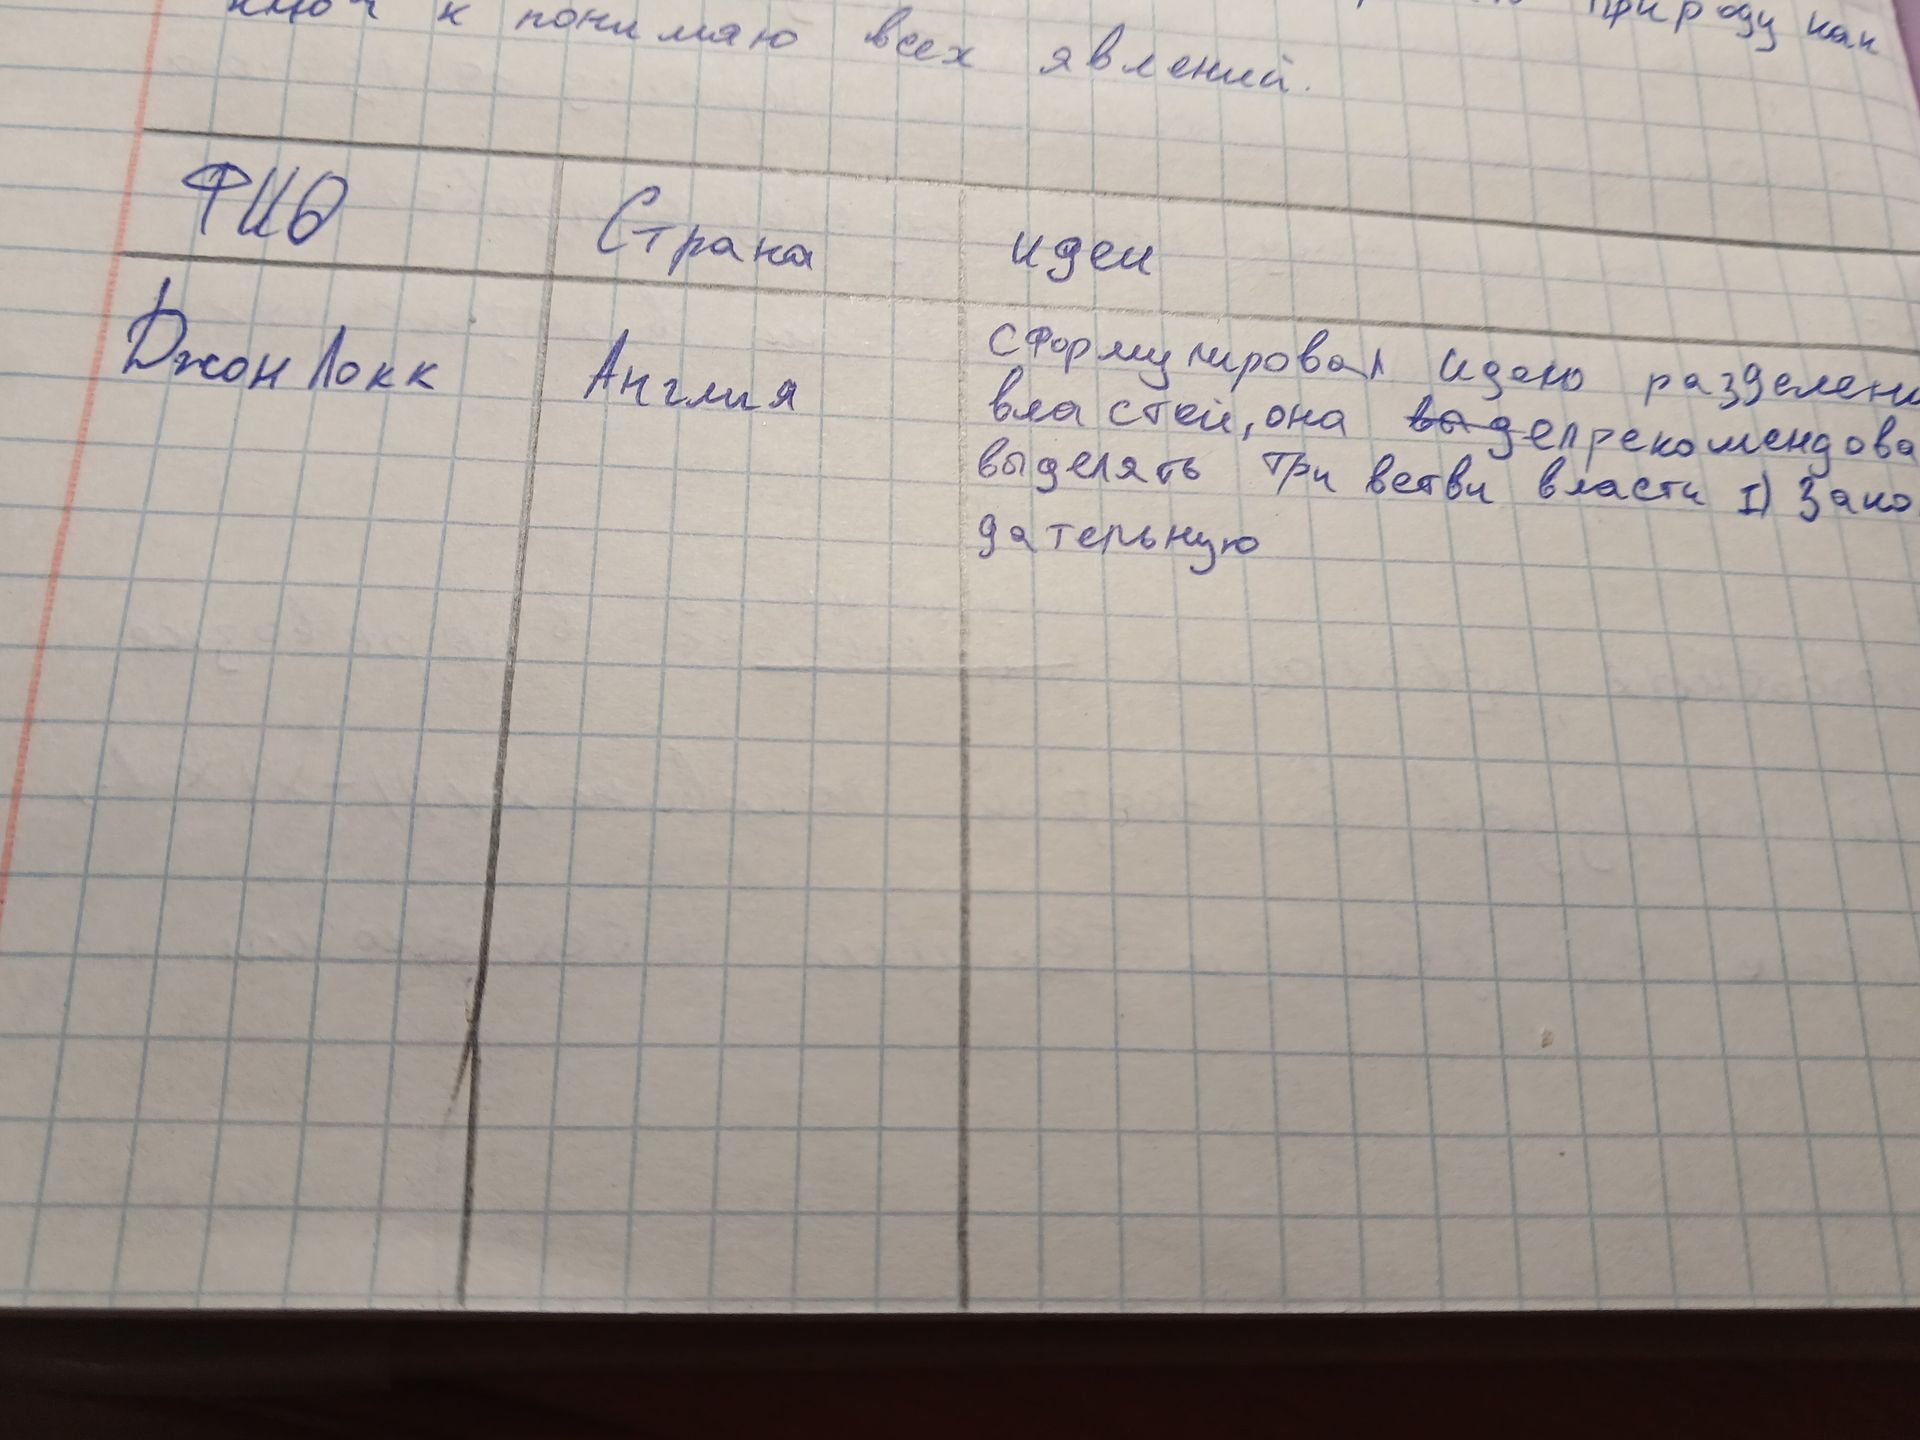 ключ к понимаю всех явлений. природу как
ФИО Страна идеи
Джон Локк Англия сформулировал идею разделени
властей, она рекомендова
выделять три ветви власти 1) Зако
дательную